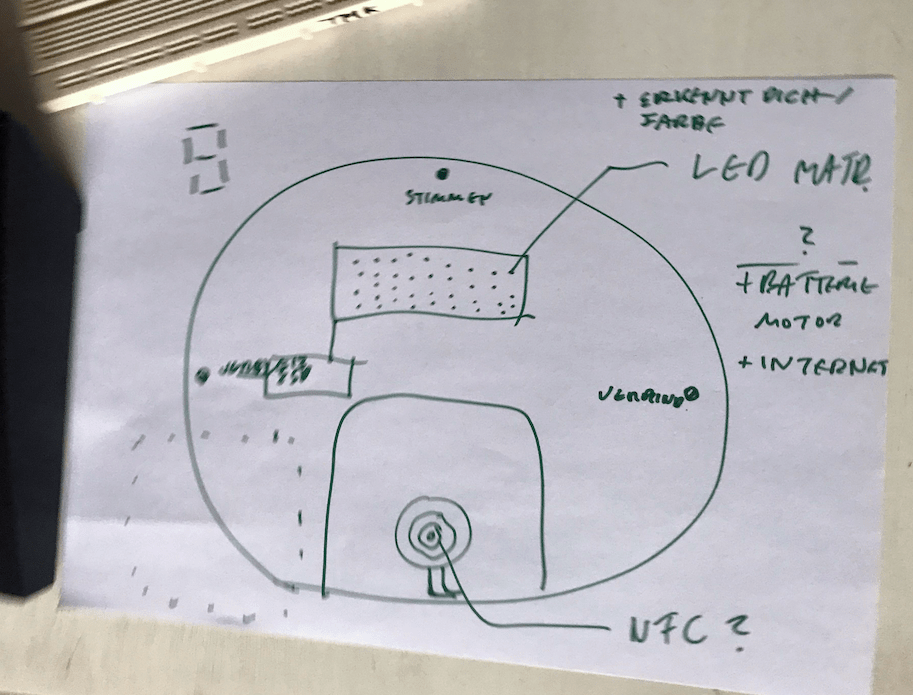 + ERKENNT DICH /
FARBE
LED MATR.
STIMMEN
?
+ BATTERIE
MOTOR
+ INTERNET
NFC ?